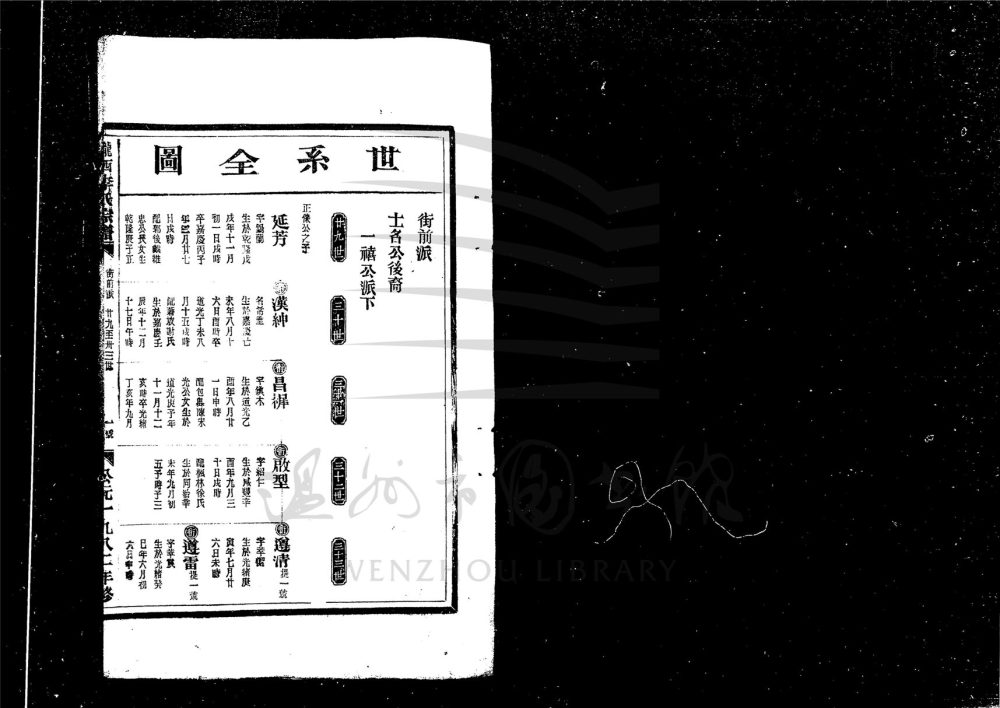 世系全圖
街前派
士名公後裔
一禧公派下
廿九世
三十世
三十一世
三十二世
三十三世
正儀公之子
延芳
字錫蘭
生於乾隆戊
戌年十一月
初一日戌時
卒嘉慶丙子
年四月廿七
日戌時
忠公長女生
乾隆庚子正
漢紳
生於嘉慶己
未年八月十
六日酉時卒
道光丁未八
月十五戌時
生於嘉慶壬
辰年十二月
十七日午時
昌徲
字僕木
生於道光乙
酉年八月廿
一日申時
光公女生於
道光庚子年
十一月十二
亥時卒光緒
丁亥年九月
啟型
字紹仁
生於咸豐辛
酉年九月三
十日戌時
配楓林徐氏
生於同治辛
未年九月初
五子時子二
遵清 提一號
生於光緒庚
寅年七月廿
六日未時
遵雷 提一號
生於光緒癸
巳年六月初
六日午時
隴西李氏宗譜
街前派
廿九至卅三世
一號
公元一九八二年修
溫州市圖書館
WENZHOU LIBRARY